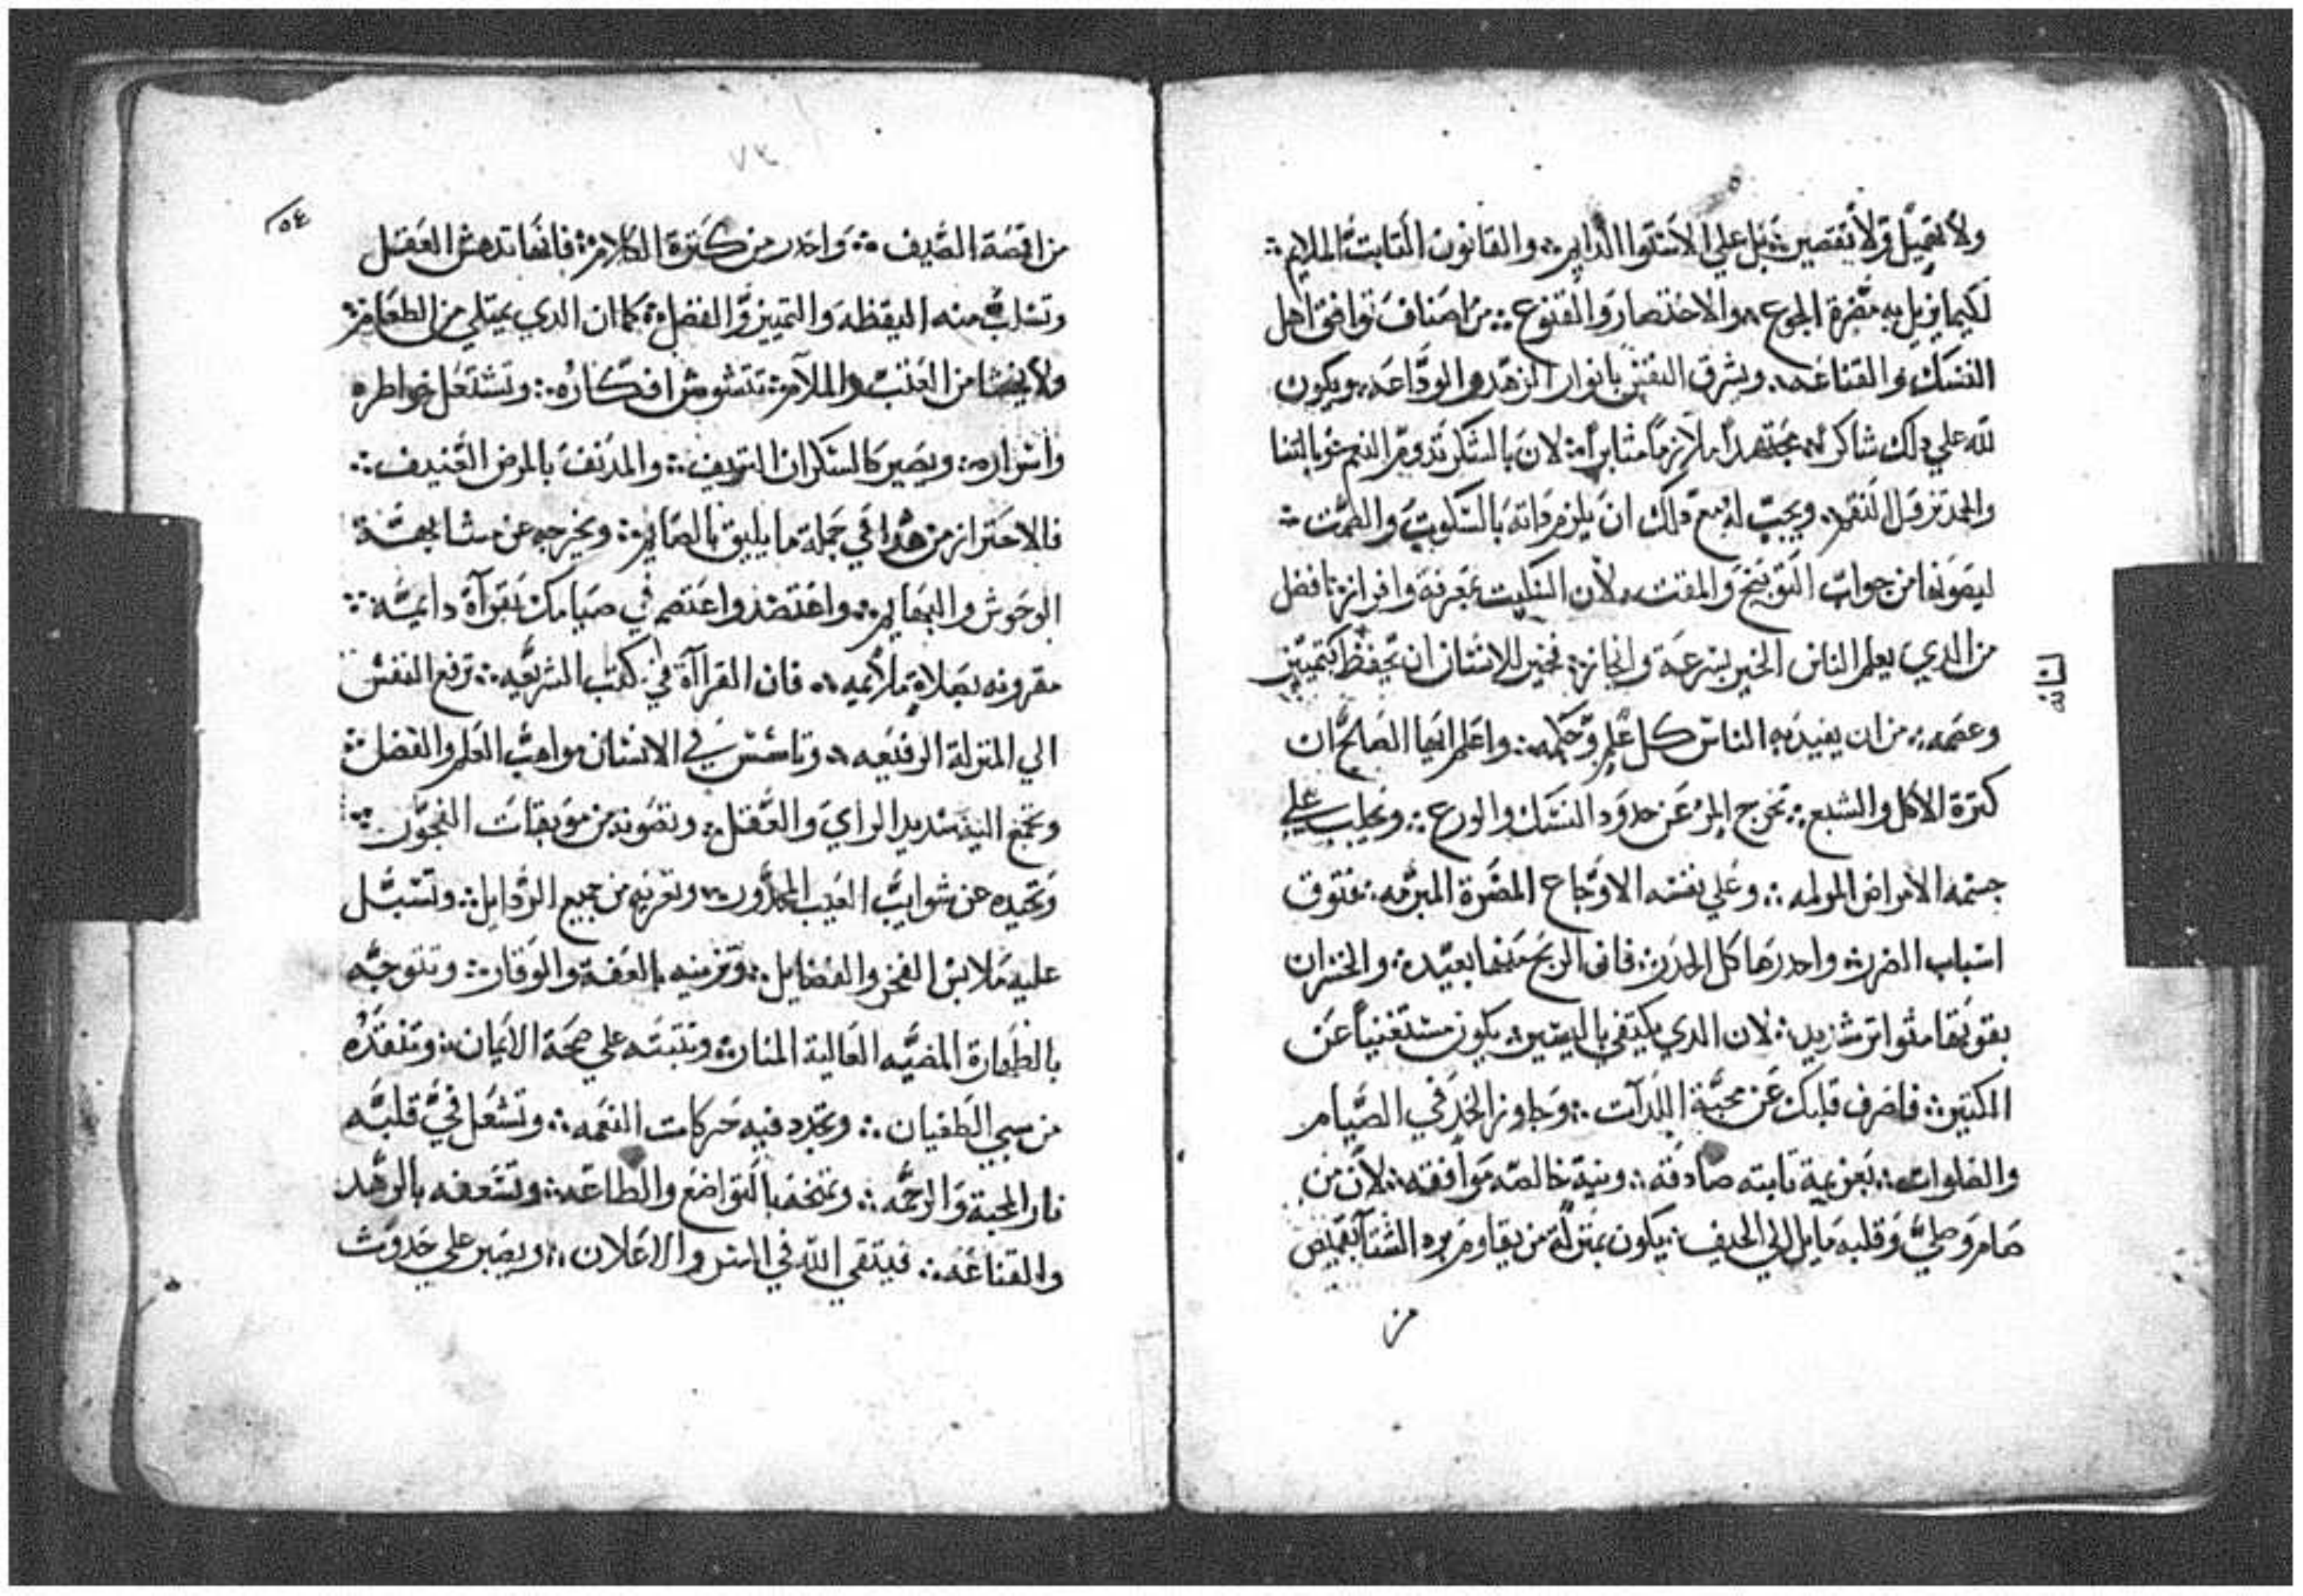 ولا تقميل ولا تقصير ؞ بل علي الاستوا الدايم ؞ والقانون التابت الملايم ؞
لكيما يزيل به مضرة الجوع ؞ والاختصار والقنوع ؞ من اصناف توافق اهل
النسك والقناعه ؞ وتشرق النفس بانوار الزهد والوداعه ؞ ويكون
لله علي دلك شاكر ؞ مجتهداً ملازماً مثابراً ؞ لان بالشكر تدوم النعم
والحمد تزول النقم ؞ ويجب له مع دلك ان يلزم داته بالسكوت والصمت ؞
ليصونها من جواب التوبيخ والمقت ؞ لان السكيت بمعرفة وافرازه افضل
من الدي يعلم الناس الخير بسرعة وانجاز ؞ فخير للانسان ان يحفظ كتمييز
وعصمه ؞ من ان يفيد به الناس كل علم وحكمه ؞ واعلم ايها الصالح ان
كترة الاكل والشبع ؞ تخرج المرء عن حدود النسك والورع ؞ وتجلب علي
جسمه الامراض المولمه ؞ وعلي نفسه الاوجاع المضرة المبرمه ؞ فتوق
اسباب الضرر ؞ واحدرها كل الحدر ؞ فان الربح منها بعيد ؞ والخسران
بقوتها متواتر شديد ؞ لان الدي يكتفي باليسير ؞ يكون مستغنياً عن
الكتير ؞ فاصرف قلبك عن محبة اللدات ؞ وجاوز الحد في الصيام
والصلوات ؞ بعزيمة تابته صادقه ؞ ونية خالصه موافقه ؞ لان من
صام وصلي وقلبه مايل الي الحيف ؞ يكون بمنزلة من يقاوم برد الشتا بقميص
من
٧٣
٥٤
من اقصة الصيف ؞ واحدر من كترة الكلام ؞ فانها تدهش العقل
وتسلب منه اليقظه والتمييز والفضل ؞ كما ان الدي يمتلي من الطعام ؞
ولا يخشا من العتب والملام ؞ تتشوش افكاره ؞ وتشتعل خواطره
واسراره ؞ ويصير كالسكران النزيف ؞ والمدنف بالمرض العنيف ؞
فالاحتراز من هدا في جملة ما يليق بالصايم ؞ ويخرجه عن مشابهة
الوحوش والبهايم ؞ واعتضد واعتصم في صيامك بقراة دايمه ؞
مقرونه بصلاة ملايمه ؞ فان القراآة في كتب الشريعه ؞ ترفع النفس
الي المنزلة الرفيعه ؞ وتاسس في الانسان مواهب العلم والفضل ؞
وتجمع اليه سديد الراي والعقل ؞ وتصونه من موبقات الفجور ؞
وتحيده عن شوايب العيب المحدور ؞ وتعريه من جميع الردايل ؞ وتسبل
عليه ملابس الفخر والفضايل ؞ وتزينه بالعفة والوقار ؞ وتتوجه
بالطهارة المضيه العالية المنار ؞ وتتبته علي صحة الايمان ؞ وتنقده
من سبي الطغيان ؞ وتجدد فيه حركات النعمه ؞ وتشعل في قلبه
نار المحبة والرحمه ؞ وتمنحه بالتواضع والطاعه ؞ وتسعفه بالزهد
والقناعه ؞ فيتقي الله في السر والاعلان ؞ ويصبر علي حدوث